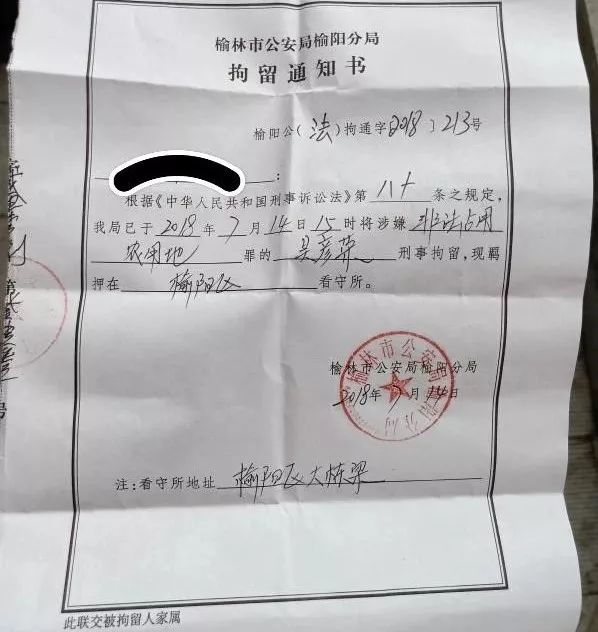 榆林市公安局榆阳分局
拘留通知书
榆阳公(法)拘通字〔2018〕213号
:
根据《中华人民共和国刑事诉讼法》第八十条之规定,
我局已于2018年7月14日15时将涉嫌非法占用
农用地罪的吴彦荣刑事拘留,现羁
押在榆阳区看守所。
榆林市公安局榆阳分局
2018年7月14日
注:看守所地址榆阳区大栋梁
此联交被拘留人家属